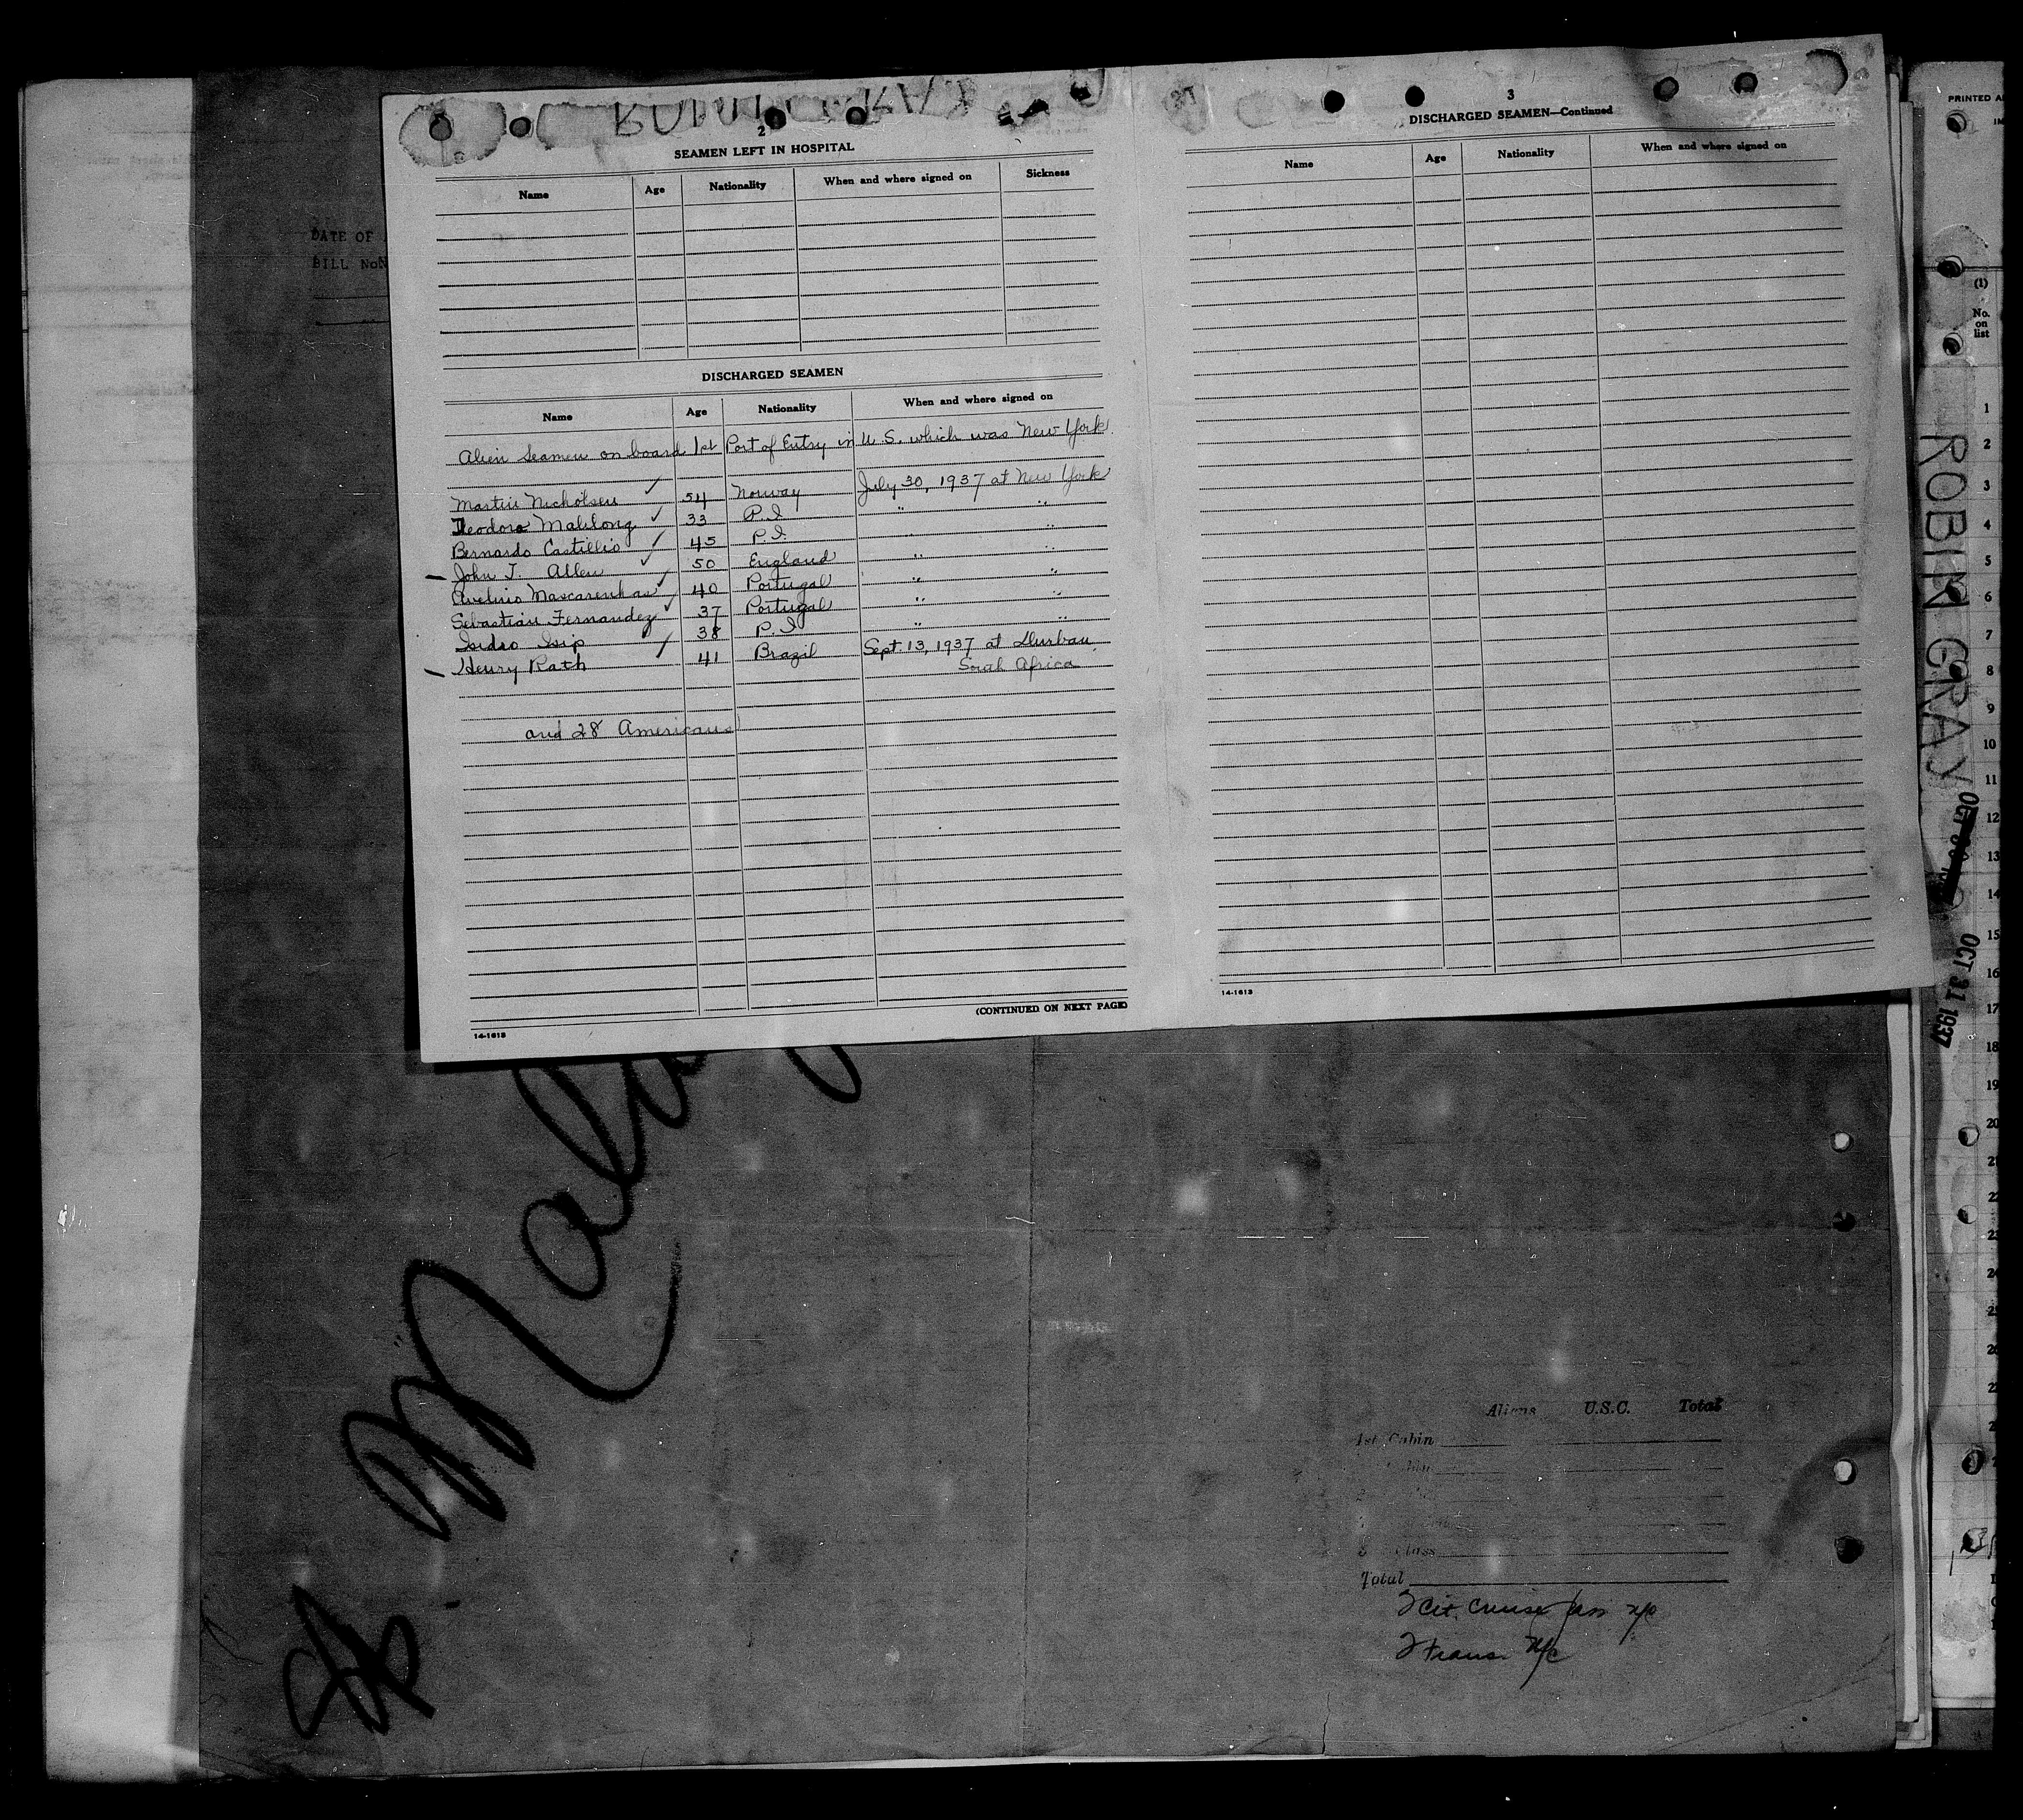 DATE OF
BILL NoN
2
SEAMEN LEFT IN HOSPITAL
Name Age Nationality When and where signed on Sickness
DISCHARGED SEAMEN
Name Age Nationality When and where signed on
Alien Seamen on board 1st Port of Entry in U.S. which was New York
Martin Nicholsen ✓ 54 Norway July 30, 1937 at New York
Teodoro Malilong ✓ 33 P.I. " "
Bernardo Castillio ✓ 45 P.I. " "
John T. Allen ✓ 50 England " "
Avelino Mascarenhas ✓ 40 Portugal " "
Sebastian Fernandez ✓ 37 Portugal " "
Isidro Isip ✓ 38 P.I. " "
Henry Rath ✓ 41 Brazil Sept. 13, 1937 at Durban
South Africa
and 28 Americans
(CONTINUED ON NEXT PAGE)
14-1613
3
DISCHARGED SEAMEN—Continued
Name Age Nationality When and where signed on
14-1613
PRINTED
(1)
No.
on
list
1
2
3
4
5
6
7
8
9
10
11
12
13
14
15
16
17
18
19
20
ROBIN GRAY
OCT 31 1937
Aliens U.S.C. Total
1st Cabin
Class
Total